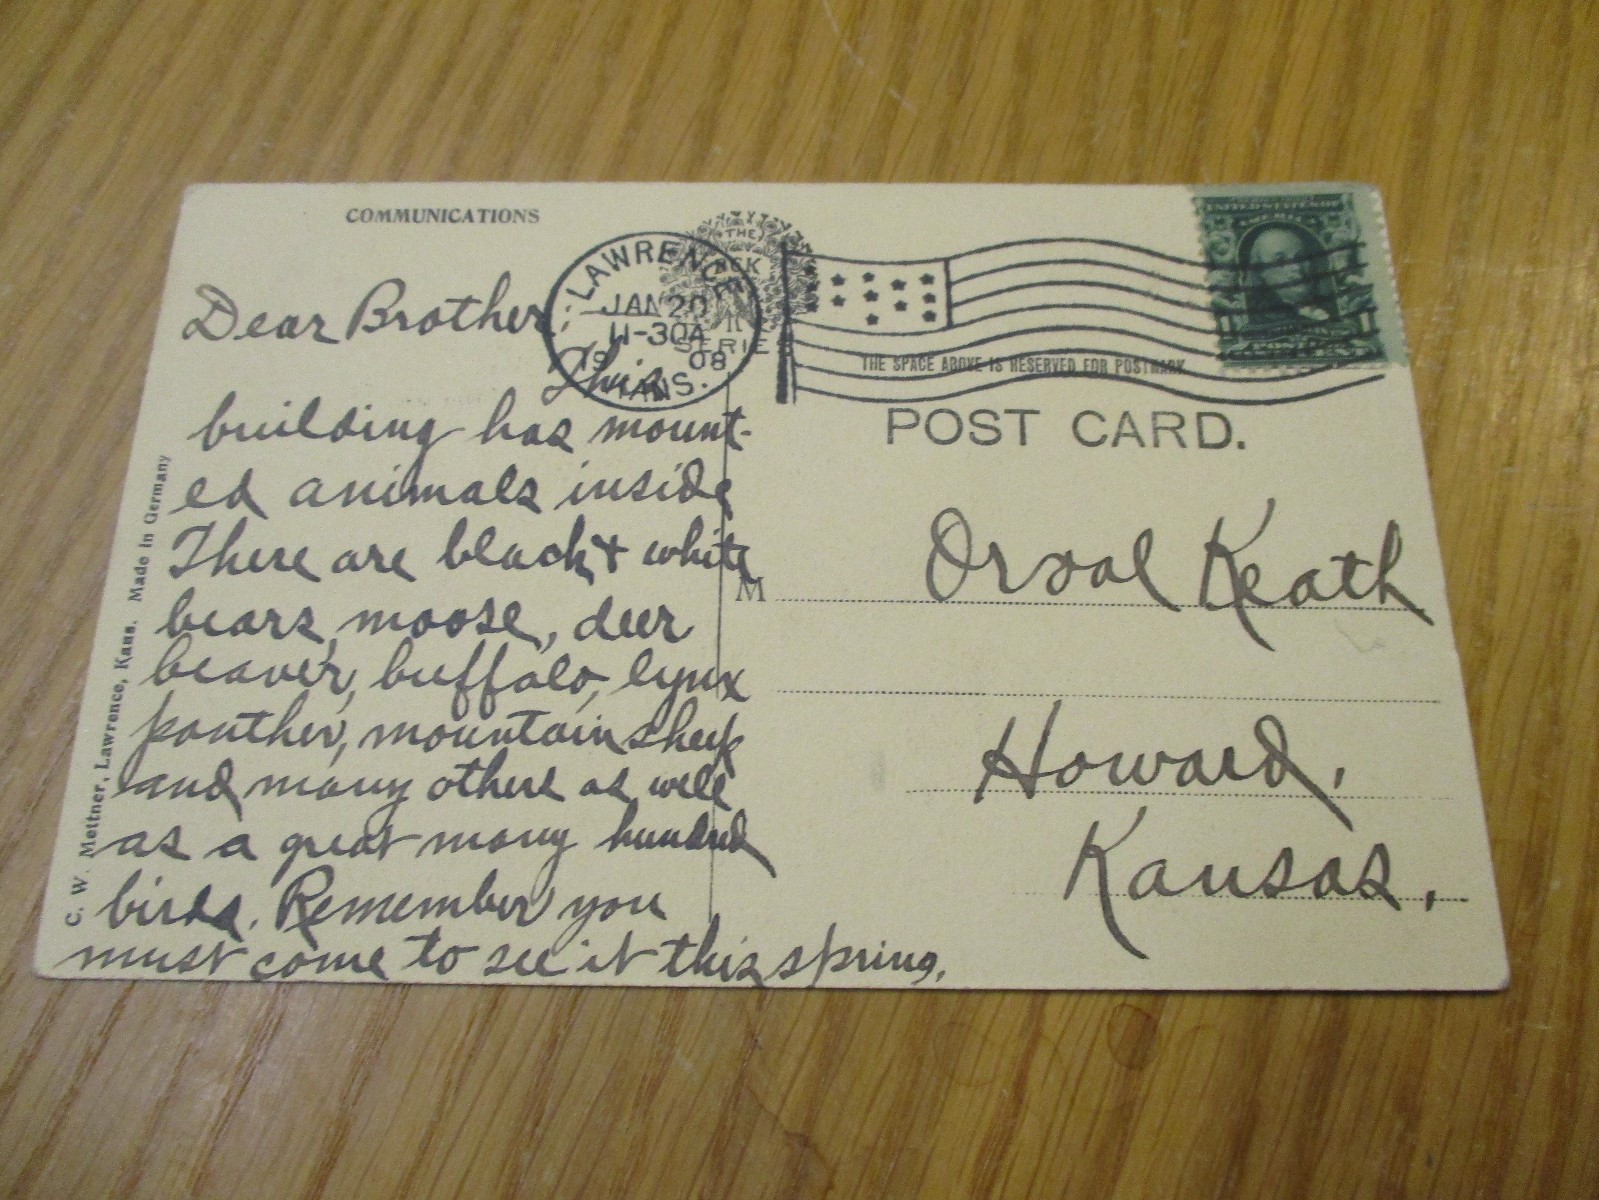 COMMUNICATIONS
Dear Brother:
This
building has mount-
ed animals inside
There are black & white
bears, moose, deer
beaver, buffalo, lynx
panther, mountain sheep
and many others as well
as a great many hundred
birds. Remember you
must come to see it this spring.
C. W. Mettner, Lawrence, Kans. Made in Germany
LAWRENCE
JAN 20
11-30A
19 08
KANS.
THE
SERIES
UNITED STATES OF
AMERICA
THE SPACE ABOVE IS RESERVED FOR POSTMARK
POST CARD.
M Orval Keath
Howard,
Kansas.